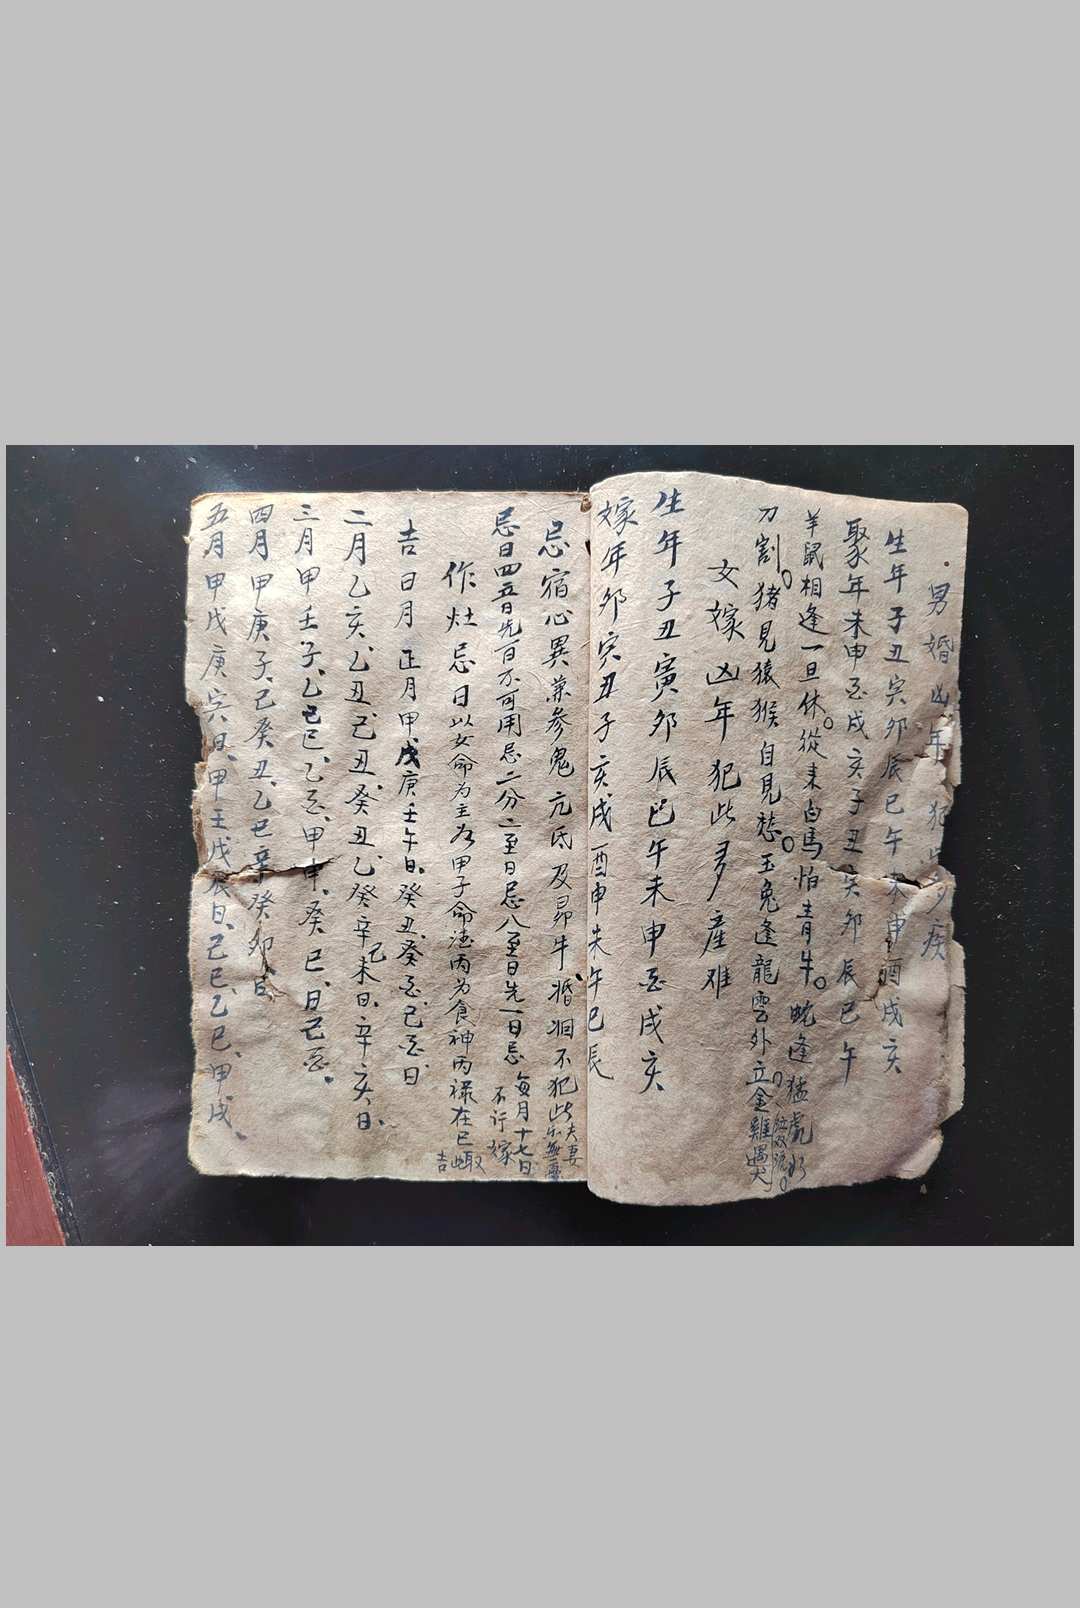 男婚凶年犯此多疾
生年子丑寅卯辰巳午未申酉戌亥
娶年未申酉戌亥子丑寅卯辰巳午
羊鼠相逢一旦休。從来白馬怕青牛。蛇逢猛虎如
刀割。猪見猿猴自見愁。玉兔逢龍雲外立金雞遇犬
泪双流。
女嫁凶年犯此多産难
生年子丑寅卯辰巳午未申酉戌亥
嫁年卯寅丑子亥戌酉申未午巳辰
忌宿心異箕参鬼亢氐及昴牛、婚姻不犯此夫妻
乐無憂
忌日四立日先一日不可用忌二分二至日忌八至日先一日忌每月十七日
不行嫁
作灶忌日以女命為主如甲子命法丙为食神丙禄在巳取
吉
吉日月正月甲戌庚壬午日、癸丑、癸酉、己酉、日
二月乙亥、乙丑、己丑、癸丑、乙癸辛己未日、辛亥日、
三月甲壬子、乙己巳、乙酉、甲申、癸巳、日己酉、
四月甲庚子、己癸丑、乙巳辛癸卯日
五月甲戊庚寅日、甲壬戊辰日、己巳、乙巳、甲戌、